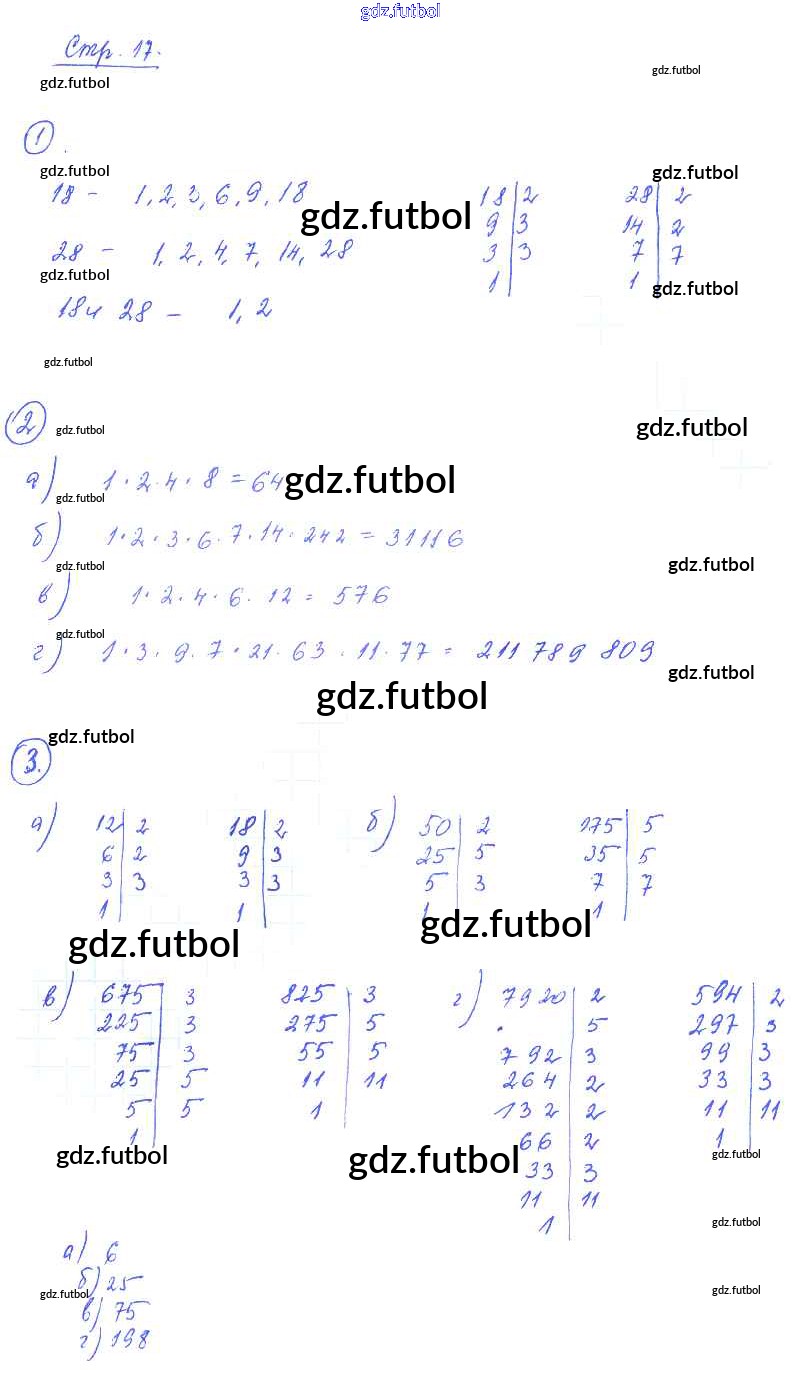 gdz.futbol
Стр. 17.
gdz.futbol gdz.futbol
1.
gdz.futbol gdz.futbol
18 - 1, 2, 3, 6, 9, 18 18 | 2 28 | 2
gdz.futbol
9 | 3 14 | 2
28 - 1, 2, 4, 7, 14, 28 3 | 3 7 | 7
gdz.futbol 1 | 1 | gdz.futbol
18 и 28 - 1, 2
gdz.futbol
2
gdz.futbol gdz.futbol
а) 1 · 2 · 4 · 8 = 64 gdz.futbol
gdz.futbol
б) 1 · 2 · 3 · 6 · 7 · 14 · 242 = 31116
gdz.futbol gdz.futbol
в) 1 · 2 · 4 · 6 · 12 = 576
gdz.futbol
г) 1 · 3 · 9 · 7 · 21 · 63 · 11 · 77 = 211 789 809
gdz.futbol
gdz.futbol
gdz.futbol
3.
а) 12 | 2 18 | 2 б) 50 | 2 175 | 5
6 | 2 9 | 3 25 | 5 35 | 5
3 | 3 3 | 3 5 | 3 7 | 7
1 | 1 | 1 | 1 |
gdz.futbol gdz.futbol
в) 675 | 3 825 | 3 г) 7920 | 2 594 | 2
225 | 3 275 | 5 . | 5 297 | 3
75 | 3 55 | 5 792 | 3 99 | 3
25 | 5 11 | 11 264 | 2 33 | 3
5 | 5 1 | 132 | 2 11 | 11
1 | 66 | 2 1 |
gdz.futbol gdz.futbol gdz.futbol
33 | 3
11 | 11
1 |
gdz.futbol
а) 6
б) 25
gdz.futbol gdz.futbol
в) 75
г) 198